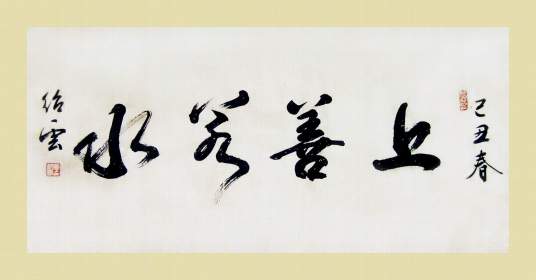 己丑春
上善若水
绍雲